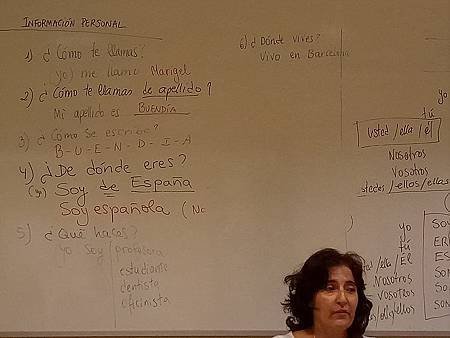 INFORMACIÓN PERSONAL
1) ¿Cómo te llamas?
(yo) me llamo Marigel
2) ¿Cómo te llamas de apellido?
Mi apellido es BUENDÍA
3) ¿Cómo se escribe?
B-U-E-N-D-I-A
4) ¿De dónde eres?
(yo) Soy de España
Soy española (No
5) ¿Qué haces?
Yo soy profesora
estudiante
dentista
oficinista
6) ¿Dónde vives?
Vivo en Barcelona
yo
tú
usted / ella / él
Nosotros
Vosotros
stedes / ellos / ellas
yo
tú
ted / ella / Él
Nosotros
Vosotros
SO
ER
ES
SO
SO
SON